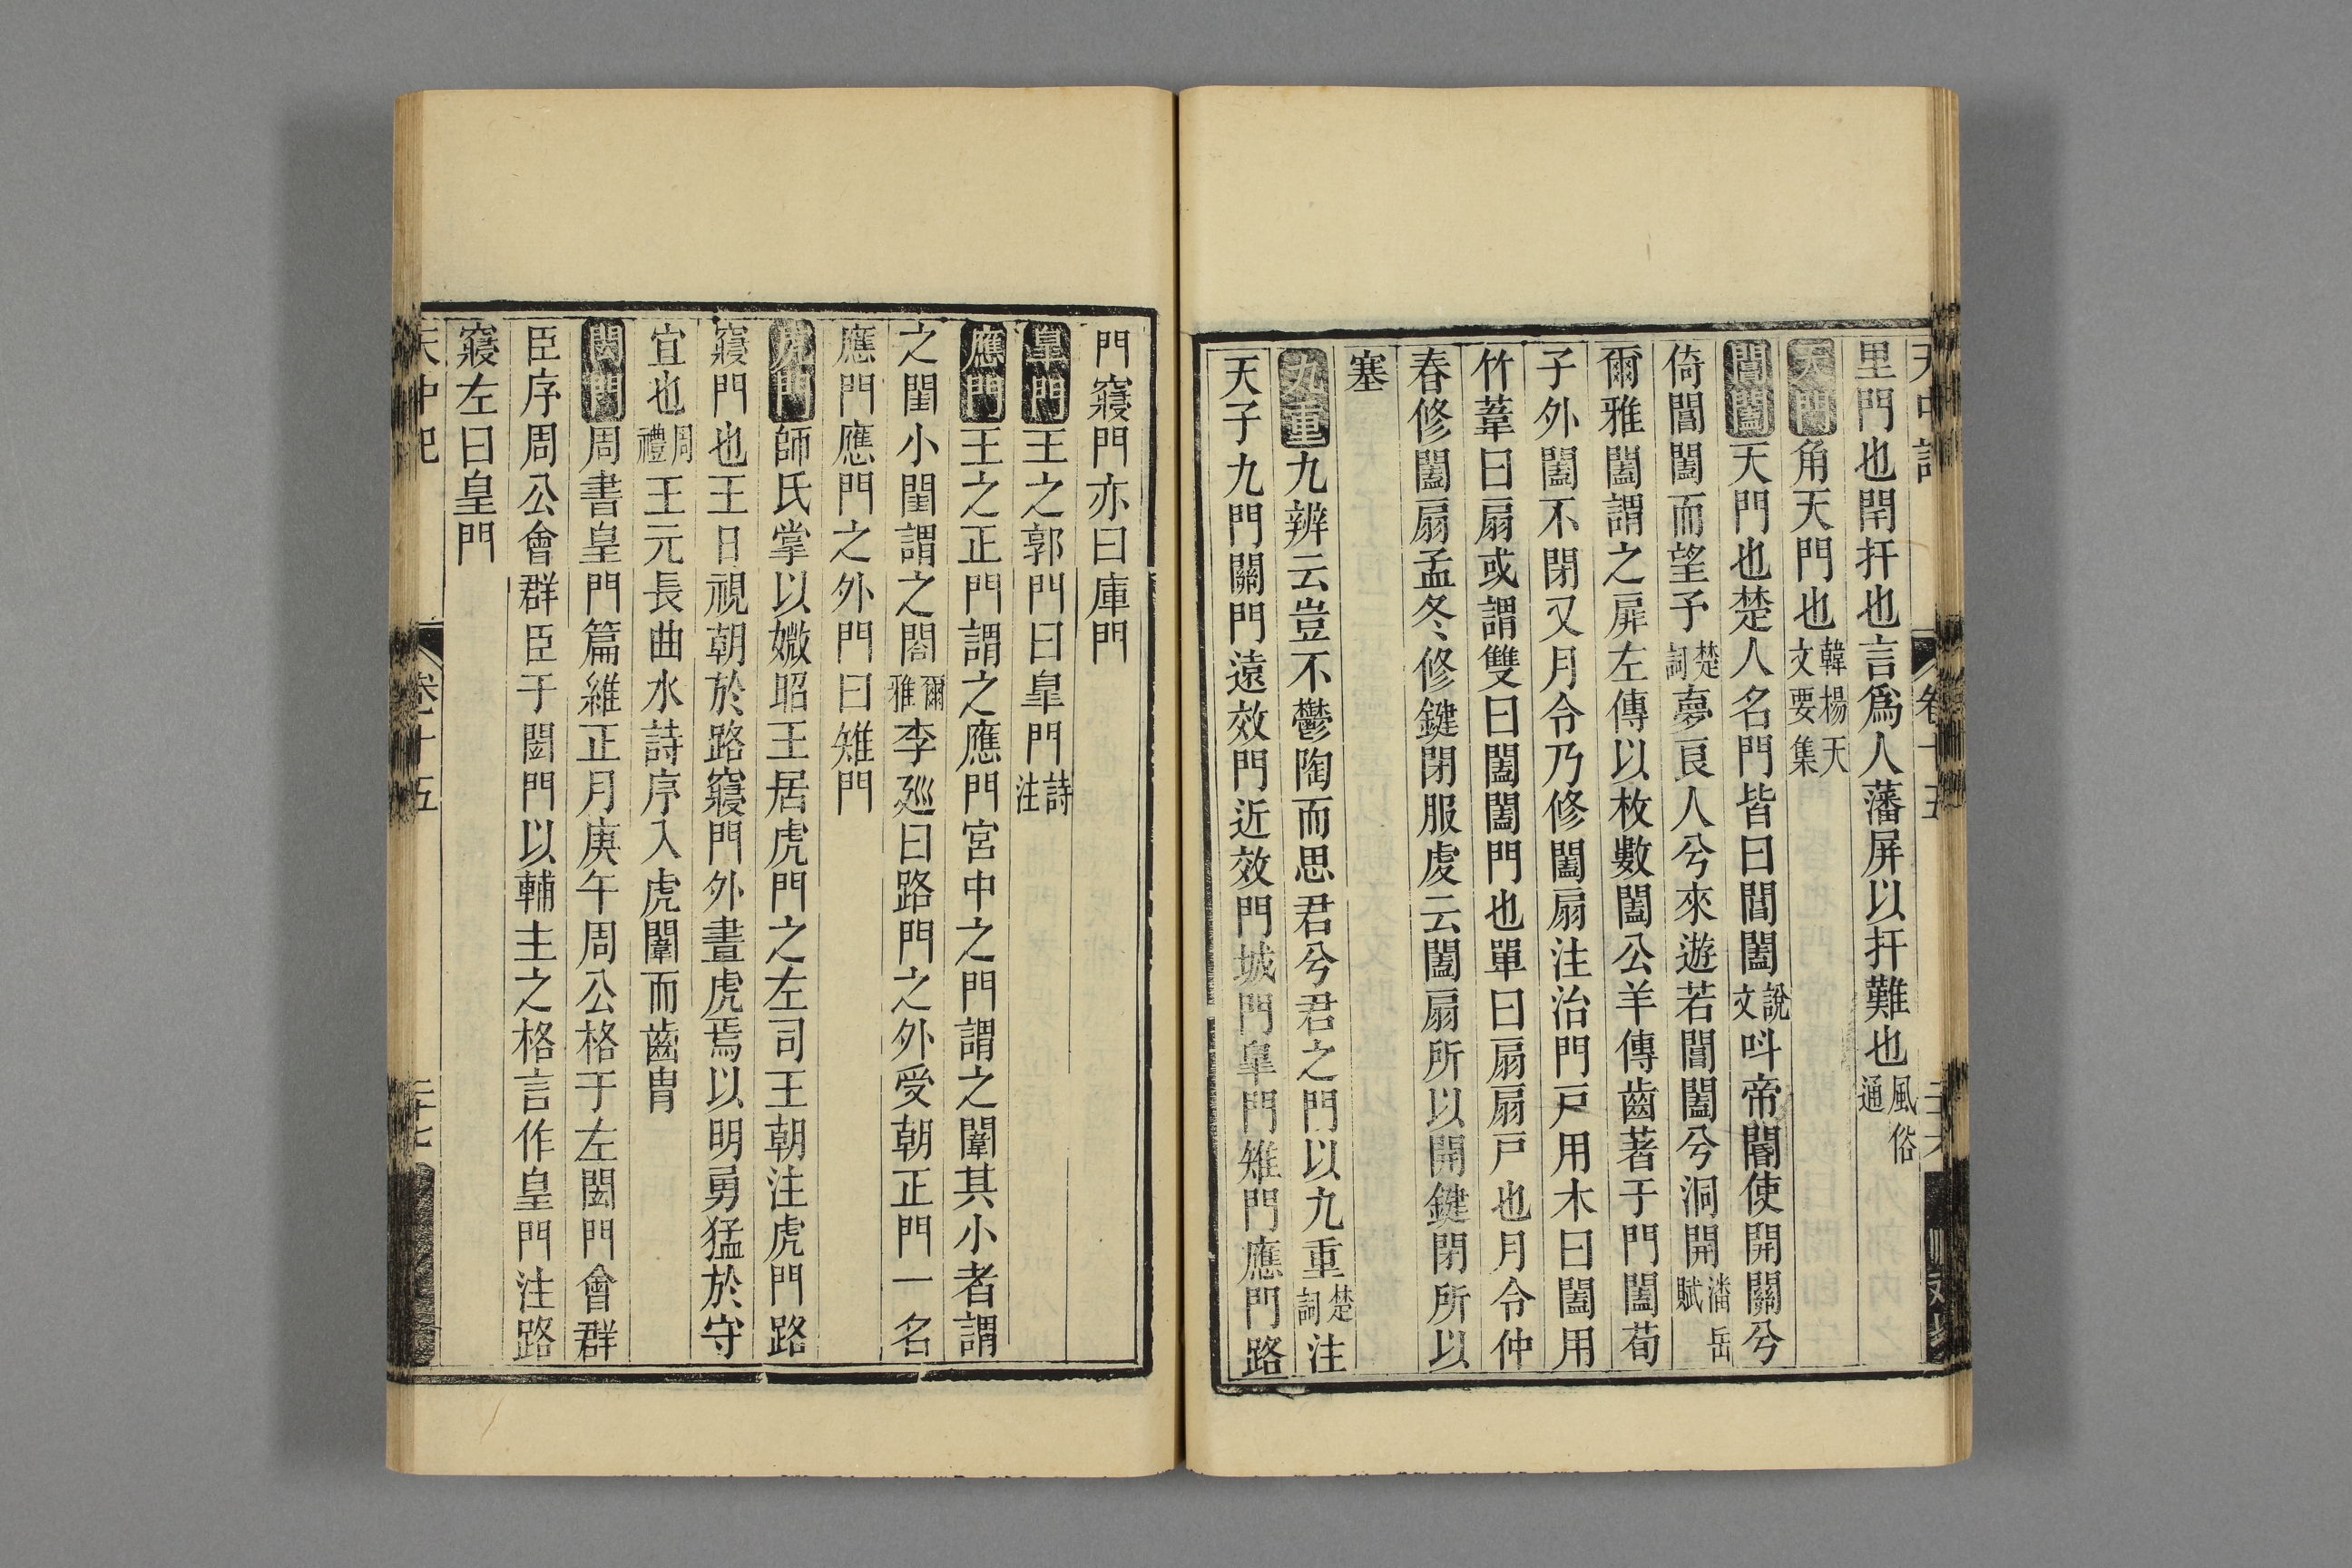 里門也閈扞也言爲人藩屏以扞難也風俗通
天門角天門也韓楊天文要集
閶闔天門也楚人名門皆曰閶闔說文呌帝閽使開關兮
倚閶闔而望予楚詞夢良人兮來遊若閶闔兮洞開潘岳賦
爾雅闔謂之扉左傳以枚數闔公羊傳齒著于門闔荀
子外闔不閉又月令乃修闔扇注治門戸用木曰闔用
竹葦曰扇或謂雙曰闔闔門也單曰扇扇戸也月令仲
春修闔扇孟冬修鍵閉服虔云闔扇所以開鍵閉所以
塞
九重九辨云豈不鬱陶而思君兮君之門以九重楚詞注
天子九門關門遠效門近效門城門臯門雉門應門路
門寢門亦曰庫門
皇門王之郭門曰臯門詩注
應門王之正門謂之應門宮中之門謂之闈其小者謂
之閨小閨謂之閤爾雅李廵曰路門之外受朝正門一名
應門應門之外門曰雉門
虎門師氏掌以媺昭王居虎門之左司王朝注虎門路
寢門也王日視朝於路寢門外畫虎焉以明勇猛於守
宜也周禮王元長曲水詩序入虎闈而齒胄
閎門周書皇門篇維正月庚午周公格于左閎門會群
臣序周公會群臣于閎門以輔主之格言作皇門注路
寢左曰皇門
天中記 卷十五 二十七